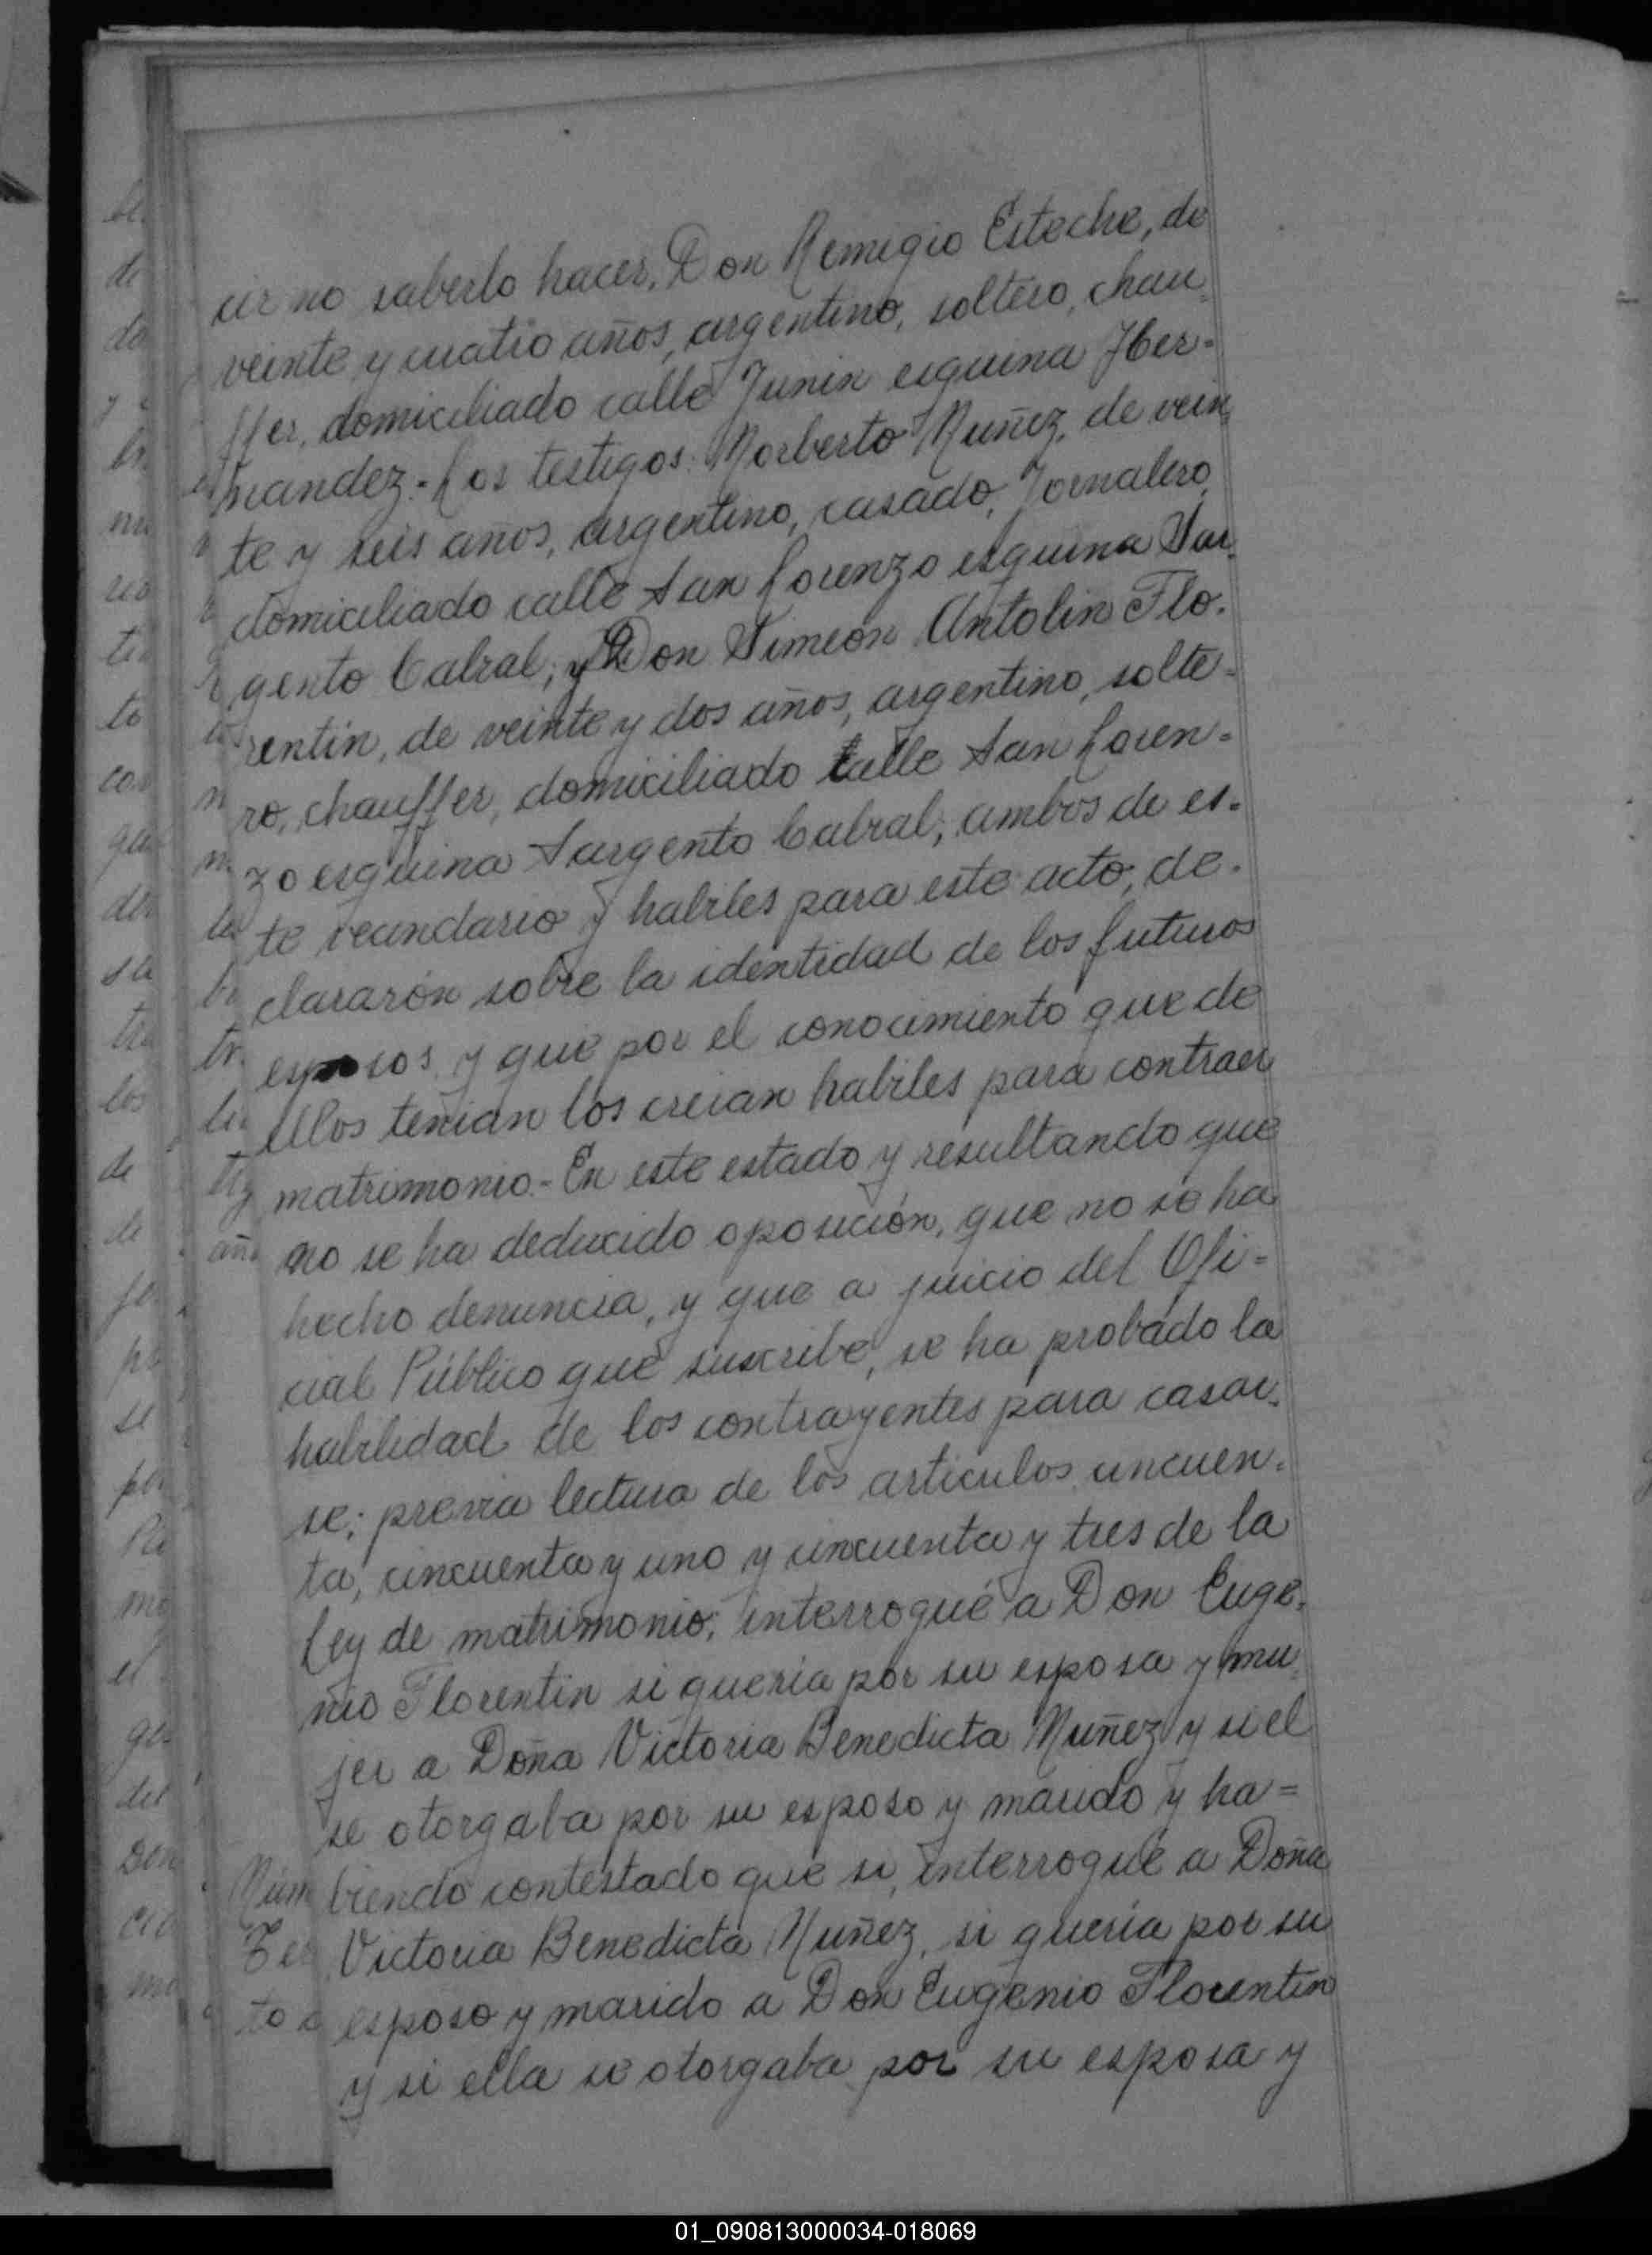 cir no saberlo hacer, Don Remigio Esteche, de
veinte y cuatro años, argentino, soltero, chau-
ffer, domiciliado calle Junin esquina Her-
nandez.- Los testigos: Norberto Nuñez, de vein-
te y seis años, argentino, casado, Jornalero,
domiciliado calle San Lorenzo esquina Sar-
gento Cabral; y Don Simeón Antolin Flo-
rentin, de veinte y dos años, argentino, solte-
ro, chauffer, domiciliado calle San Loren-
zo esquina Sargento Cabral; ambos de es-
te vecindario y habiles para este acto, de-
clararón sobre la identidad de los futuros
esposos y que por el conocimiento que de
ellos tenian los creian habiles para contraer
matrimonio.- En este estado y resultando que
no se ha deducido oposición, que no se ha
hecho denuncia, y que a juicio del Ofi-
cial Público que suscribe, se ha probado la
habilidad de los contrayentes para casar-
se; previa lectura de los articulos cincuen-
ta, cincuenta y uno y cincuenta y tres de la
Ley de matrimonio; interrogué a Don Euge-
nio Florentin si queria por su esposa y mu-
jer a Doña Victoria Benedicta Nuñez y si el
se otorgaba por su esposo y marido y ha-
biendo contestado que si, interrogué a Doña
Victoria Benedicta Nuñez, si queria por su
esposo y marido a Don Eugenio Florentin
y si ella se otorgaba por su esposa y
01_090813000034-018069